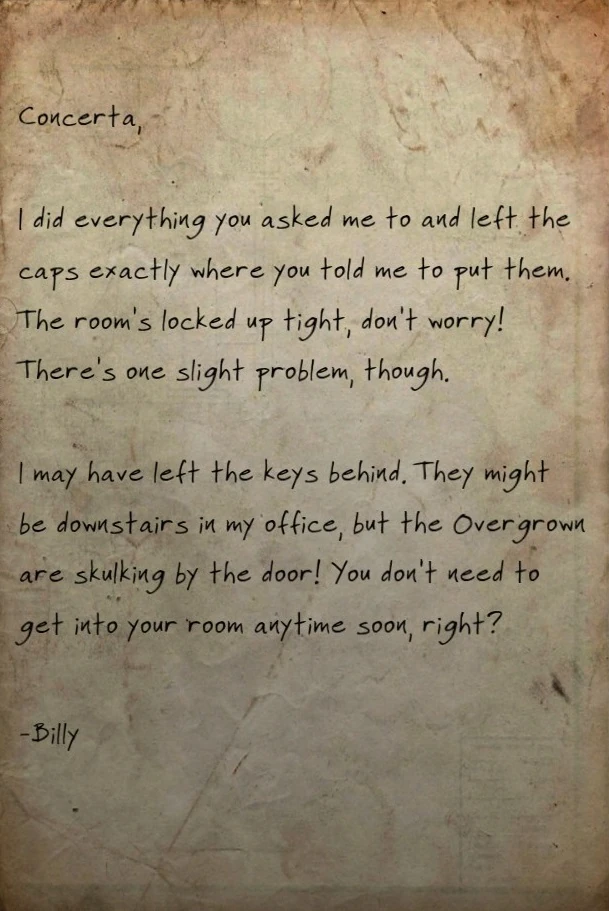 Concerta,
I did everything you asked me to and left the
caps exactly where you told me to put them.
The room's locked up tight, don't worry!
There's one slight problem, though.
I may have left the keys behind. They might
be downstairs in my office, but the Overgrown
are skulking by the door! You don't need to
get into your room anytime soon, right?
-Billy